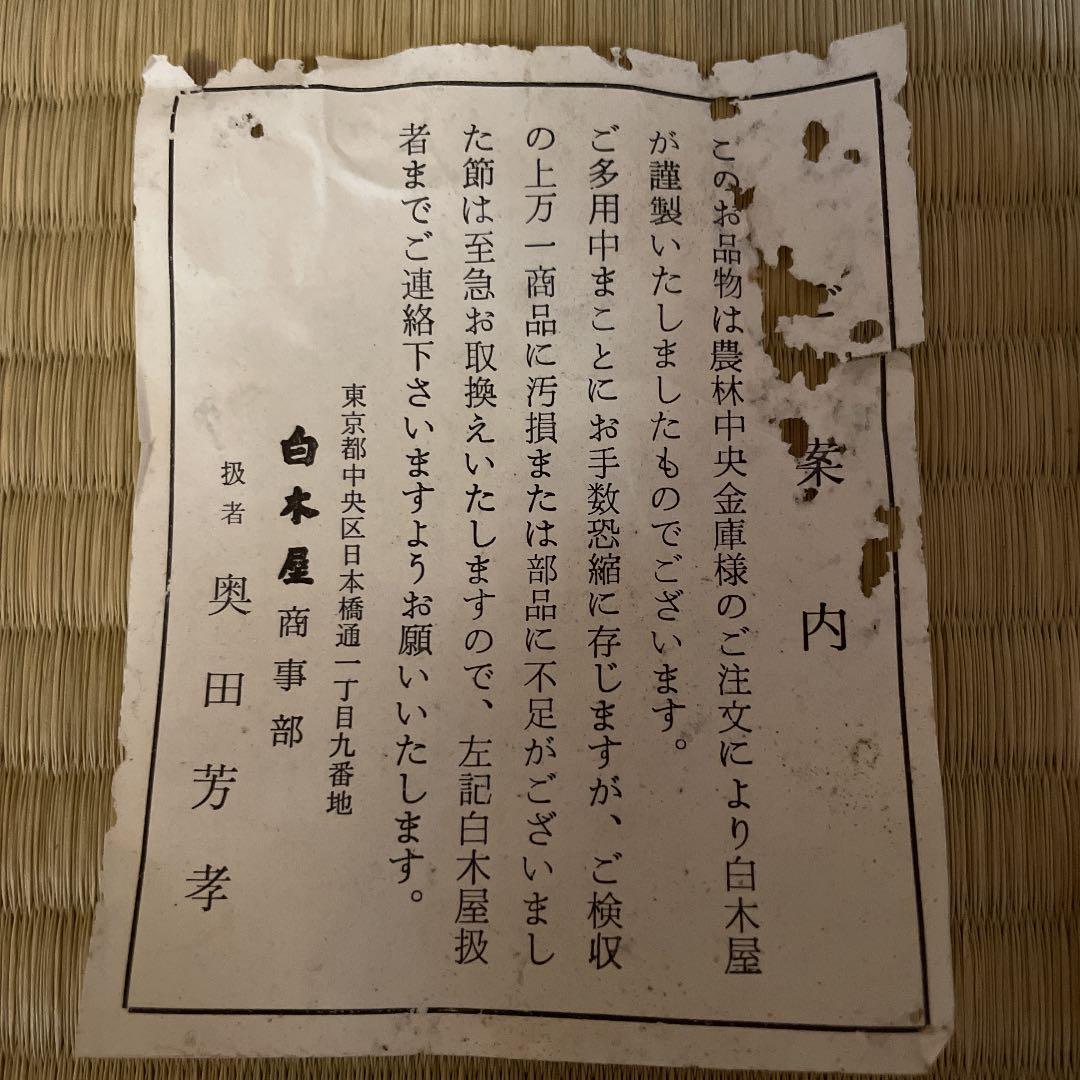 ご案内
このお品物は農林中央金庫様のご注文により白木屋
が謹製いたしましたものでございます。
ご多用中まことにお手数恐縮に存じますが、ご検収
の上万一商品に汚損または部品に不足がございまし
た節は至急お取換えいたしますので、左記白木屋扱
者までご連絡下さいますようお願いいたします。
東京都中央区日本橋通一丁目九番地
白木屋商事部
扱者 奥田芳孝